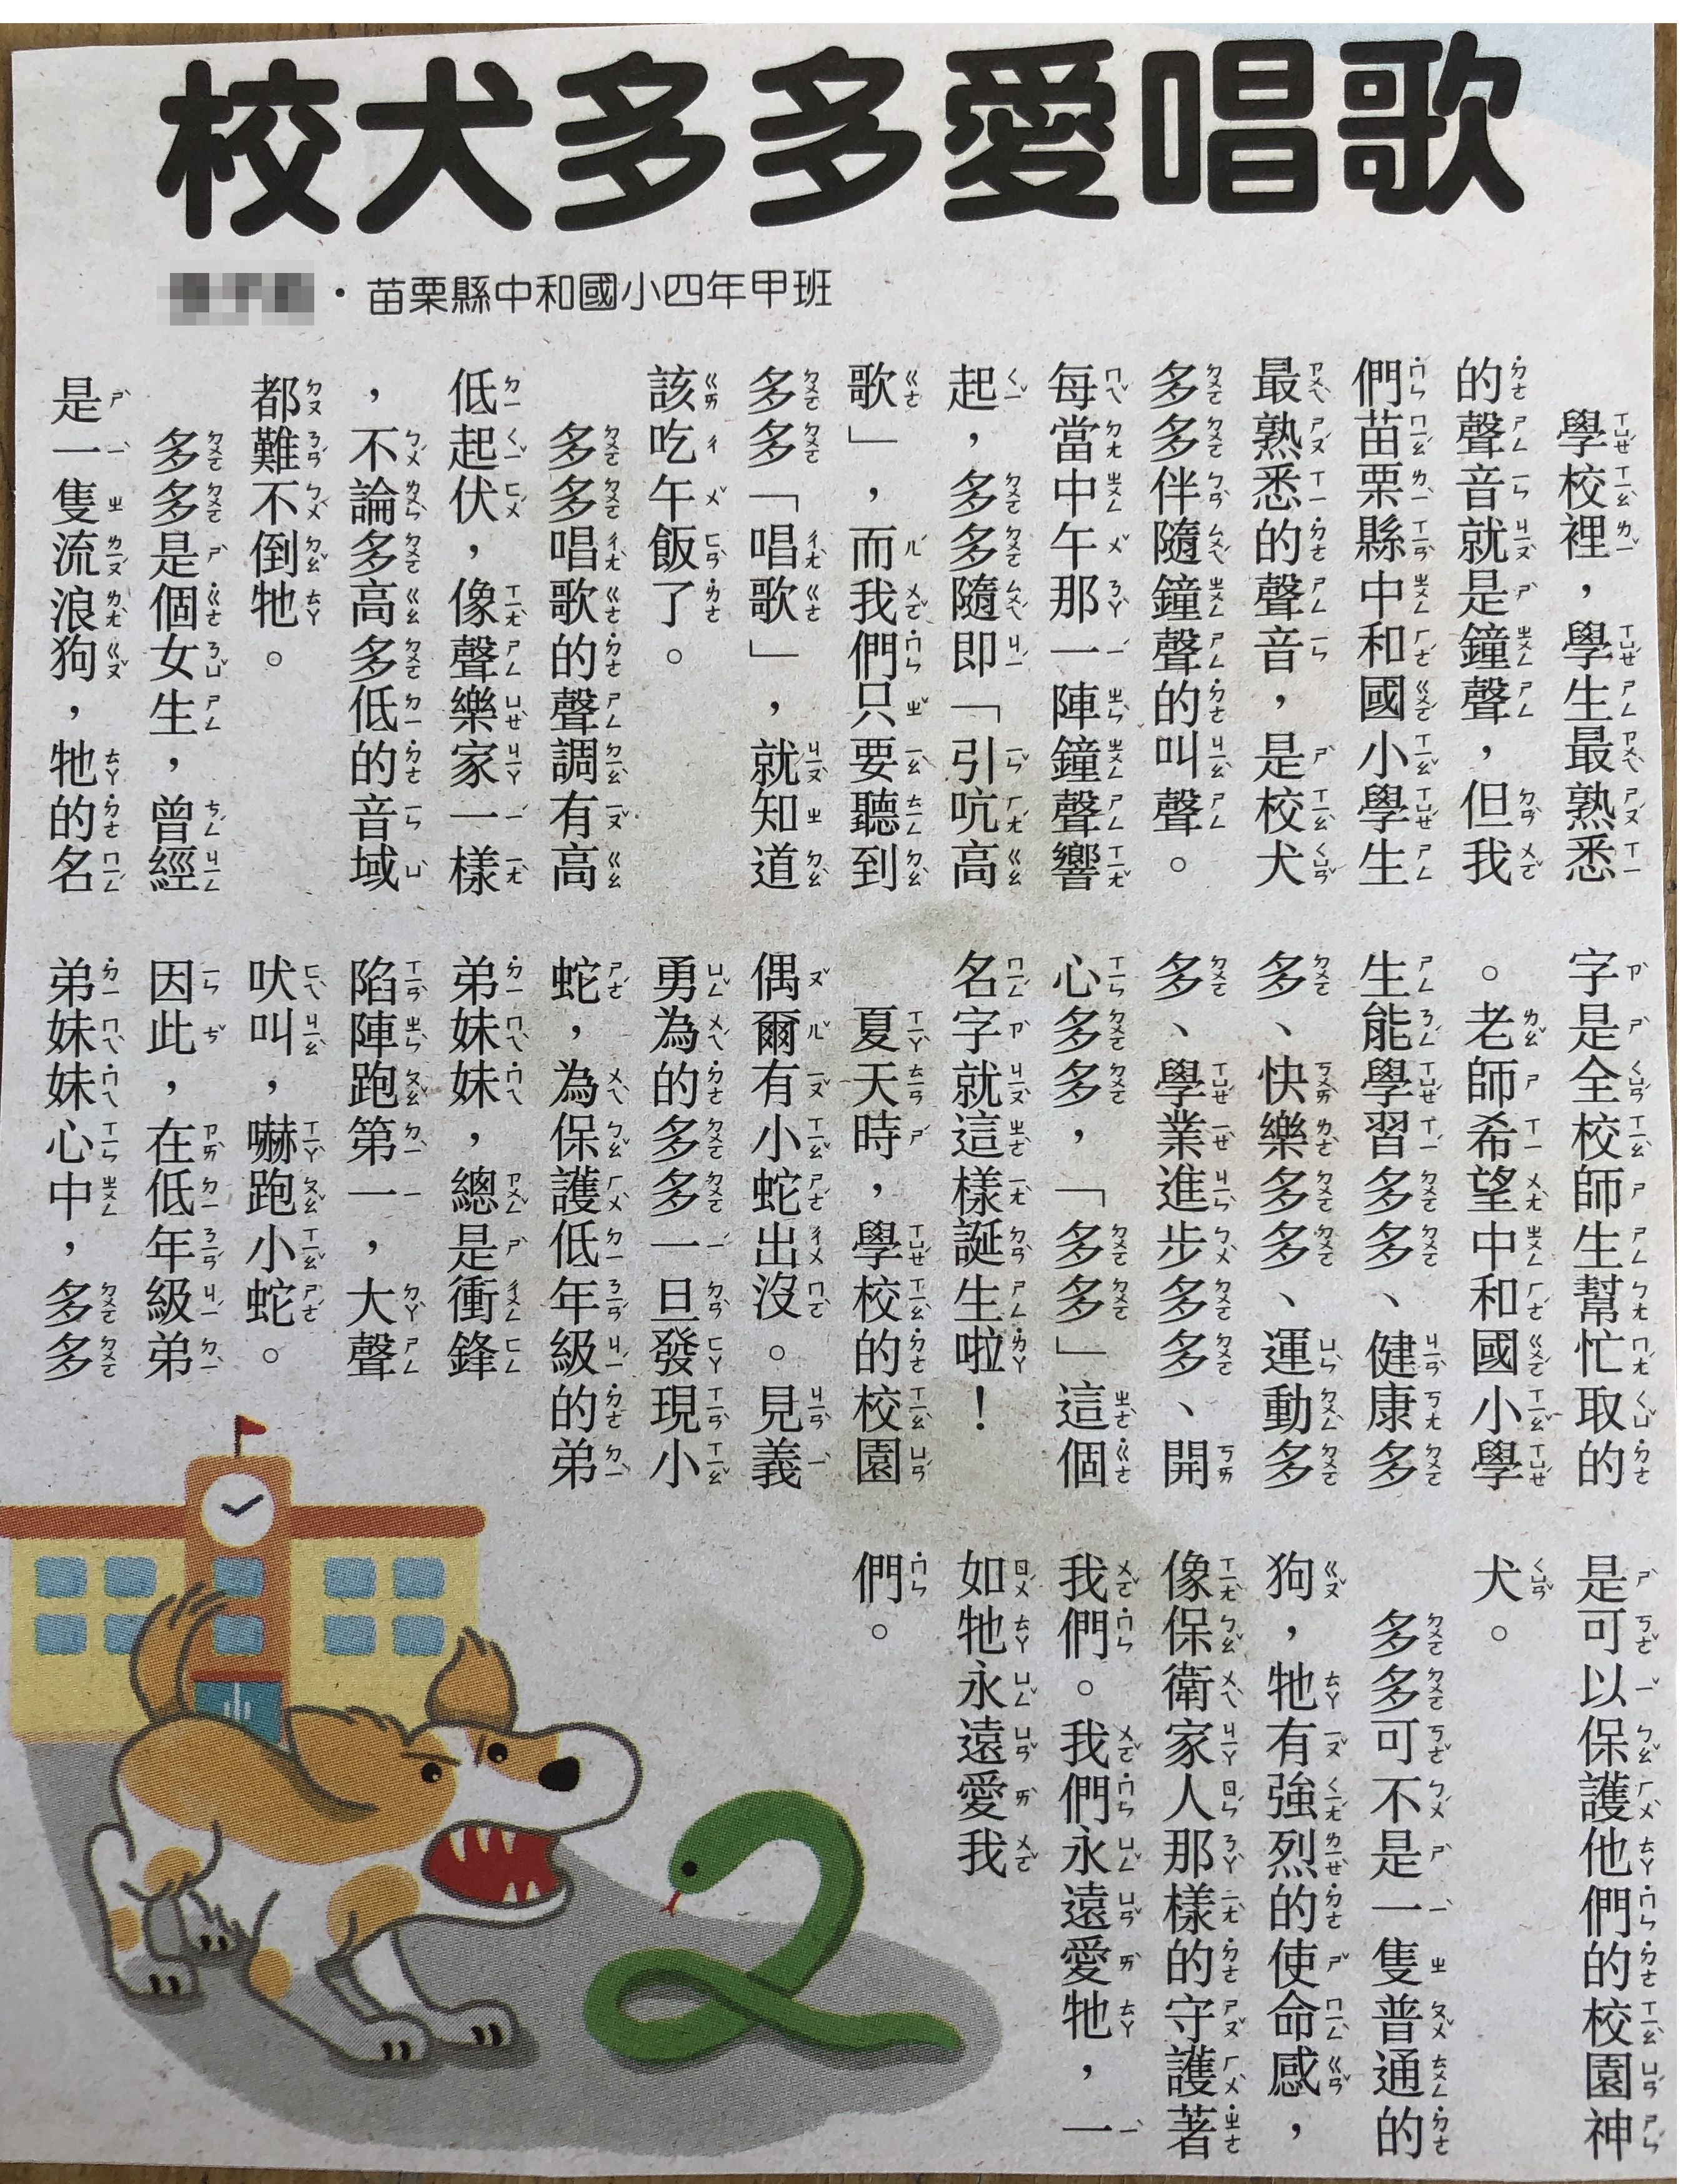 校犬多多愛唱歌
・苗栗縣中和國小四年甲班
學校裡，學生最熟悉
的聲音就是鐘聲，但我
們苗栗縣中和國小學生
最熟悉的聲音，是校犬
多多伴隨鐘聲的叫聲。
每當中午那一陣鐘聲響
起，多多隨即「引吭高
歌」，而我們只要聽到
多多「唱歌」，就知道
該吃午飯了。
多多唱歌的聲調有高
低起伏，像聲樂家一樣
，不論多高多低的音域
都難不倒牠。
多多是個女生，曾經
是一隻流浪狗，牠的名
字是全校師生幫忙取的
。老師希望中和國小學
生能學習多多、健康多
多、快樂多多、運動多
多、學業進步多多、開
心多多，「多多」這個
名字就這樣誕生啦！
夏天時，學校的校園
偶爾有小蛇出沒。見義
勇為的多多一旦發現小
蛇，為保護低年級的弟
弟妹妹，總是衝鋒
陷陣跑第一，大聲
吠叫，嚇跑小蛇。
因此，在低年級弟
弟妹妹心中，多多
是可以保護他們的校園神
犬。
多多可不是一隻普通的
狗，牠有強烈的使命感，
像保衛家人那樣的守護著
我們。我們永遠愛牠，一
如牠永遠愛我
們。